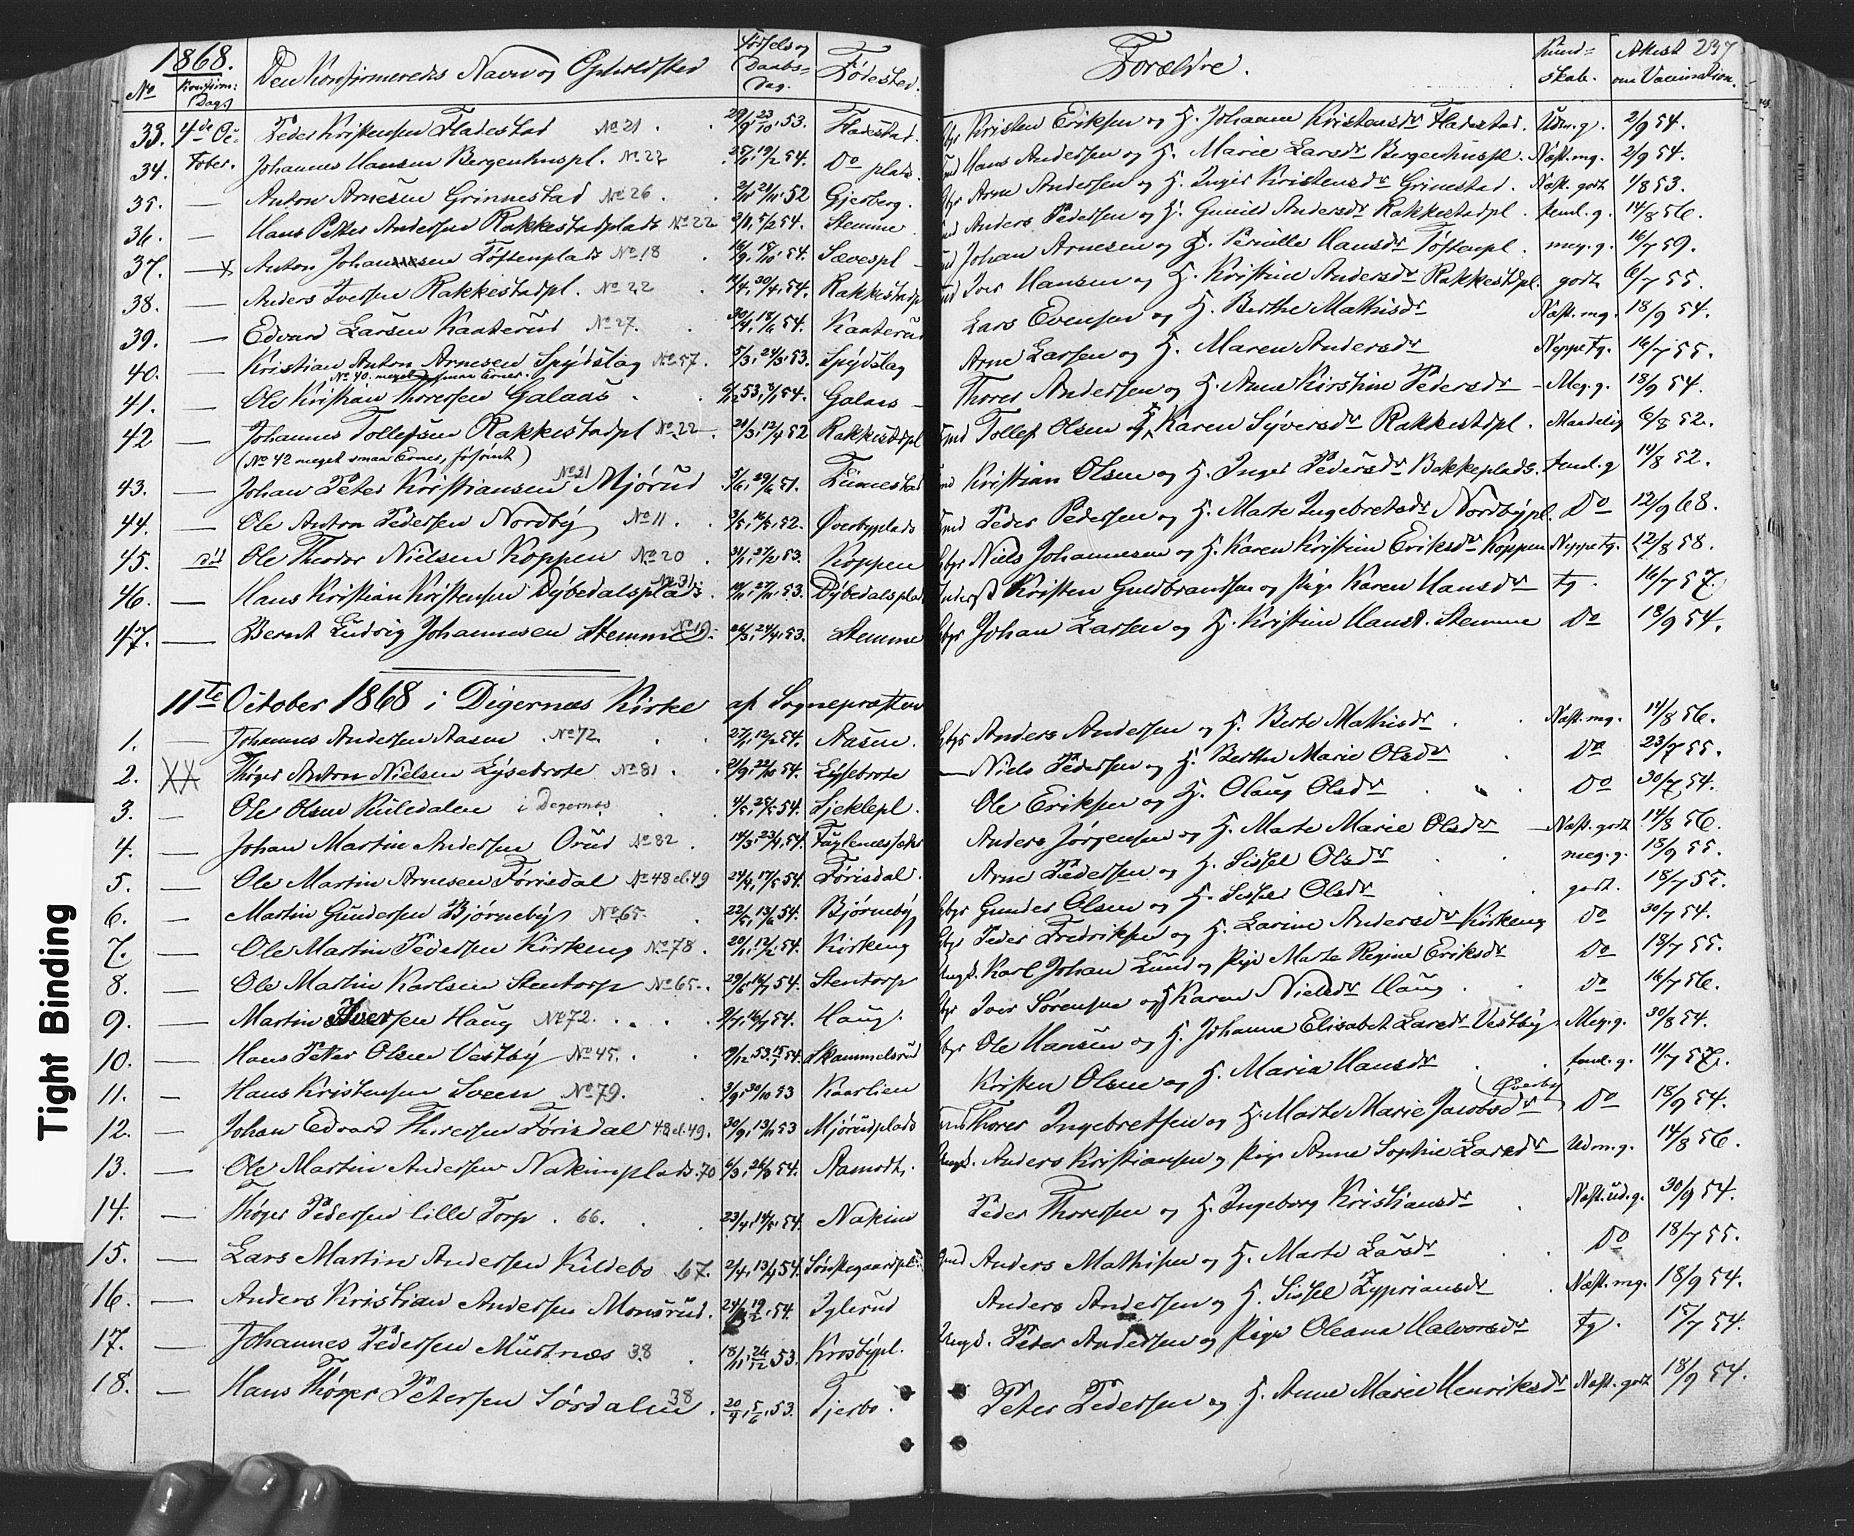 1868. Den Konfirmeredes Navn og Opholdsted Fødsels og Daabs= Dag. Fødested. Forældre. Kund= skab. Attest om Vaccination. 237
No Konfirm: Dag.
33. 4de Oc= Peder Kristensen Fladestad No 21 . 29/9, 23/10, 53. Fladestad. Gbr Kristen Eriksen og H. Johanne Kristensdr Fladestad. Udm. g. 2/9 54.
34. tober. Johannes Hansen Bergenhuspl. No 27 . 25/1, 19/2 54. Do plads. Hans Andersen og H. Marie Larsdr Bergenhuspl. Næst. mg. 2/9 54.
35. — Anton Arnesen Grinnestad No 26 . 52 Gjerberg. Gbr Arne Andersen og H. Inger Kristensdr Grinestad. Næst. godt 1/8 53.
36. — Hans Petter Andersen Rakkestadplads No 22 2/1, 5/2 54. Stemme. Anders Pedersen og H. Gunild Andersdr Rakkestadpl. teml. g. 14/8 56.
37. — x Anton Johannesen Toftenplads No 18 . 16/9, 15/10, 54. Sævespl — Johan Arnesen og H. Pernille Hansdr Toftenpl. meg. g. 16/7 59.
38. — Anders Iversen Rakkestadpl. No 22 . 11/4, 30/4, 54. Rakkestadpl Iver Hansen og H. Kristine Andersdr Rakkestdpl. godt 6/7 55.
39. — Edvard Larsen Kaaterud No 27. . 30/4, 18/6 54. Kaaterud Lars Evensen og H. Berthe Mathisdr Næst. mg. 18/9 54.
40. — Kristian Anton Arnesen Spydslag No 57. 5/3, 24/3, 53. Spydslag Arne Larsen og H. Maren Andersdr Neppe tg. 16/7 55.
No 40. meget smaa Evner.
41. — Ole Kristian Thoresen Galaas . . 6/12 53, 2/1 54. Galaas — Thores Andersen og H. Anne Kirstine Pedersdr — Meg. g. 18/9 54.
42 — Johannes Tollefsen Rakkestadpl No 22 — 21/3, 12/4 52 Rakkestdpl Hmd Tollef Olsen og H. Karen Syversdr Rakkestdpl. Maadelig 6/8 52.
(No 42 meget smaa Evner, )
43. — Johan Peter Kristiansen No 21 Mjørud 5/6, 29/6 51. Kristian Olsen og H. Inger Pedersdr Bakkeplads. teml. g 14/8 52.
44. — Ole Anton Pedersen Nordby No 11 . 3/5, 16/5, 52. Øverbyplads Hmd Peder Pedersen og H. Marte Ingebretsdr Nordbypl. Do 12/9 68.
45. Ole Theodor Nielsen Koppen No 20 . 31/1, 27/2 53. Koppen Gbr Niels Johannesen og H. Karen Kristine Eriksdr Koppen Neppe tg. 12/8 58.
46. — Hans Kristian Kristensen Dybedalsplads. No 31. 53. Dybedalsplad Kristen Guldbrandsen og Pige Karen Hansdr tg. 16/7 57.
47. — Bernt Ludvig Johannesen Stemme No 19. 26/3, 24/4, 53. Stemme Gbr Johan Larsen og H. Kristine Hansd. Stemme Do 18/9 54.
11te October 1868 i Digernæs Kirke af Sognepræsten
1. — Johannes Andersen Aasen . No 72 . . 27/1, 12/2 54. Aasen. Gbr Anders Andersen og H. Berte Mathisdr . . Næst. mg. 14/8 56.
2. XX Thøger Anton Nielsen Lysebrote No 81 . . 21/9, 22/10 54. Lysebrote — Niels Pedersen og H. Berthe Marie Olsdr . Do 23/7 55.
3. — Ole Olsen Kuledalen i Degernes . . 4/5, 25/5 54. Sjeklepl. Ole Eriksen og H. Olaug Olsdr . . Do 30/7 54.
4. — Johan Martin Andersen Orud No 82 . 14/3, 23/4, 54. Fuglenessaks Anders Jørgensen og H. Marte Marie Olsdr — Næst. godt 14/8 56.
5. — Ole Martin Arnesen Förisdal No 48 el. 49 24/4, 17/5 54. Förisdal. Arne Pedersen og H. Sissel Olsdr . . meg. g. 18/9 55.
6. — Martin Gundersen Bjørneby No 65. . 22/5, 13/6 54. Bjørneby Gbr Gunder Olsen og H. Sissel Olsdr . . godt. 18/7 55.
7. — Ole Martin Pedersen Kirkeng No 78 . 20/1, 12/2 54. Kirkeng Gbr Peder Fredriksen og H. Larine Andersdr Kirkeng Do 30/7 54.
8. — Ole Martin Karlsen Stentorp No 65. . 29/6, 16/7 54. Stentorp Ungk. Karl Johan Lund og Pige Marte Regine Eriksdr Do 18/7 55.
9. — Martin Iversen Haug No 72. . . . 9/7, 16/7 54. Haug. Gbr Iver Sørensen og H Karen Nielsdr Haug . Do 16/7 56.
10. — Hans Petter Olsen Vestby No 45. . . 9/12 53, 15/1 54. Skammelsrud Gbr Ole Hansen og H. Johanne Elisabet Larsdr Vestby Meg. g. 30/8 54.
11. — Hans Kristensen Sveen No 79. . 3/9, 30/10 53 Kaarlien Kristen Olsen og H. Maria Hansdr . . teml. g. 11/7 57.
12. — Johan Edvard Thoresen Förisdal 48 el. 49. 30/9, 13/11 53 Mjørudplads Thores Ingebretsen og H. Marte Marie Jacobsdr (Øverby) Do 18/9 54.
13. — Ole Martin Andersen Nakimplads. 70 6/3, 26/3 54. Aamodt. Ungk. Anders Kristiansen og Pige Anne Sophie Larsdr — Udm. g. 14/8 56.
14. — Thøger Pedersen lille Torp . 66. . . 23/4, 14/5, 54. Nakim Peder Thoresen og H. Ingeborg Kristiansdr . Næst. ud. g. 30/9 54.
15. — Lars Martin Andersen Kildebo 67. 2/4, 13/4 54. Sønstegaardpl. Hmd Anders Mathisen og H. Marte Larsdr . . Do 18/7 55.
16. — Anders Kristian Andersen Monsrud. 19/2 54. Iglerud Anders Andersen og H. Sissel Zypriansdr . Næst. mg. 18/9 54.
17. — Johannes Pedersen Mustnæs 38 . 18/11, 26/12 53. Krosbypl. Ungk. Peder Andersen og Pige Oleana Halvorsdr tg. 15/7 54.
18. — Hans Thøger Petersen Sördalen 38 . 20/4, 5/6, 53. Tjerbo. Peter Pedersen og H. Anne Marie Henriksdr Næst. godt 18/9 54.
Tight Binding